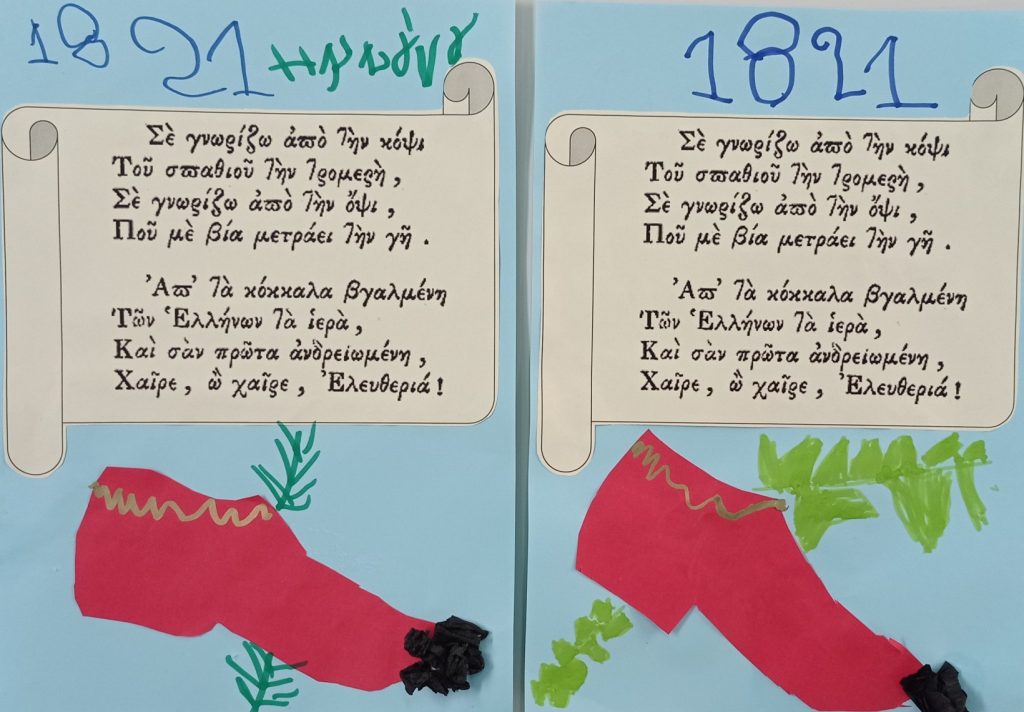 1821
Σὲ γνωρίζω ἀπὸ τὴν κόψι
Τοῦ σπαθιοῦ τὴν τρομερὴ,
Σὲ γνωρίζω ἀπὸ τὴν ὄψι,
Ποῦ μὲ βία μετράει τὴν γῆ.
Ἀπ' τὰ κόκκαλα βγαλμένη
Τῶν Ἑλλήνων τὰ ἱερὰ,
Καὶ σὰν πρῶτα ἀνδρειωμένη,
Χαῖρε, ὢ χαῖρε, Ἐλευθεριά!
1821
Σὲ γνωρίζω ἀπὸ τὴν κόψι
Τοῦ σπαθιοῦ τὴν τρομερὴ,
Σὲ γνωρίζω ἀπὸ τὴν ὄψι,
Ποῦ μὲ βία μετράει τὴν γῆ.
Ἀπ' τὰ κόκκαλα βγαλμένη
Τῶν Ἑλλήνων τὰ ἱερὰ,
Καὶ σὰν πρῶτα ἀνδρειωμένη,
Χαῖρε, ὢ χαῖρε, Ἐλευθεριά!